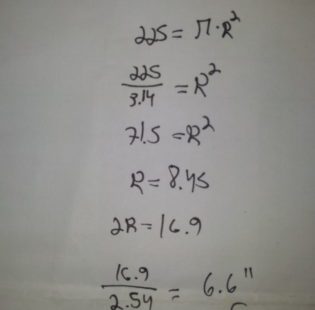 225 = π·R²
225/3.14 = R²
71.5 = R²
R = 8.45
2R = 16.9
16.9/2.54 = 6.6"